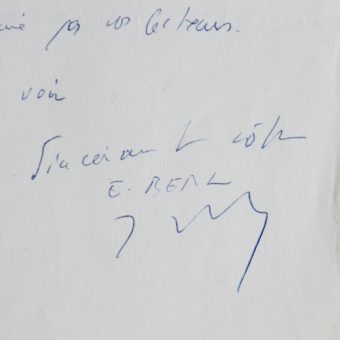 par vos lecteurs.
voir
Sincèrement vôtre
E. BERL